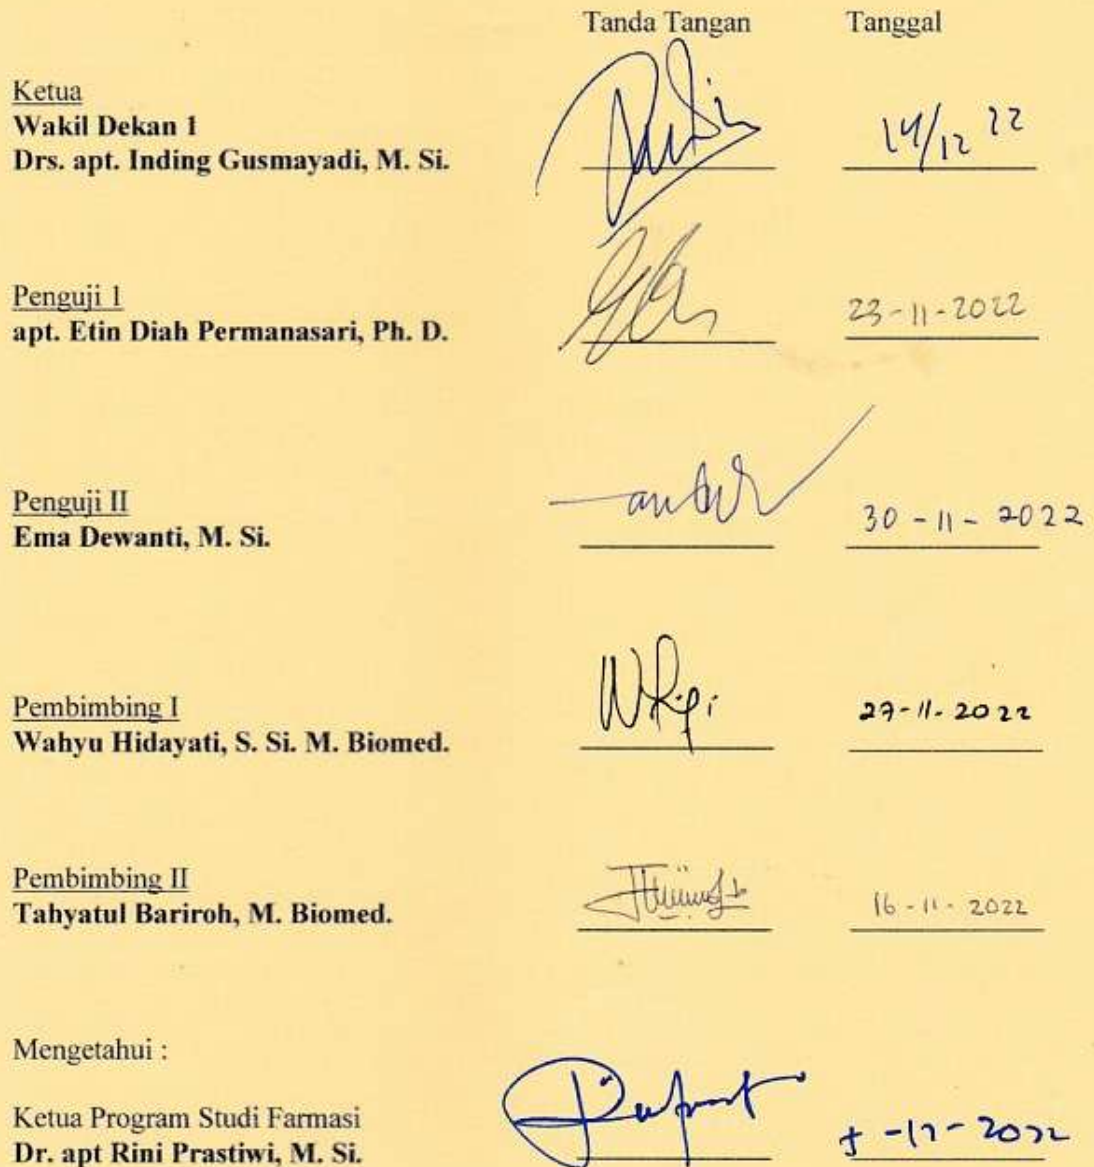 Tanda Tangan Tanggal
Ketua
Wakil Dekan 1
Drs. apt. Inding Gusmayadi, M. Si. 14/12 22
Penguji 1
apt. Etin Diah Permanasari, Ph. D. 23-11-2022
Penguji II
Ema Dewanti, M. Si. 30-11-2022
Pembimbing I
Wahyu Hidayati, S. Si. M. Biomed. 27-11-2022
Pembimbing II
Tahyatul Bariroh, M. Biomed. 16-11-2022
Mengetahui :
Ketua Program Studi Farmasi
Dr. apt Rini Prastiwi, M. Si. -12-2022